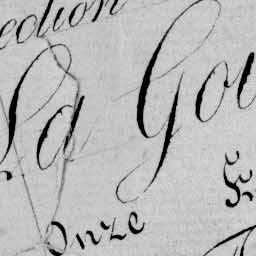 ection
La Gou
Onze